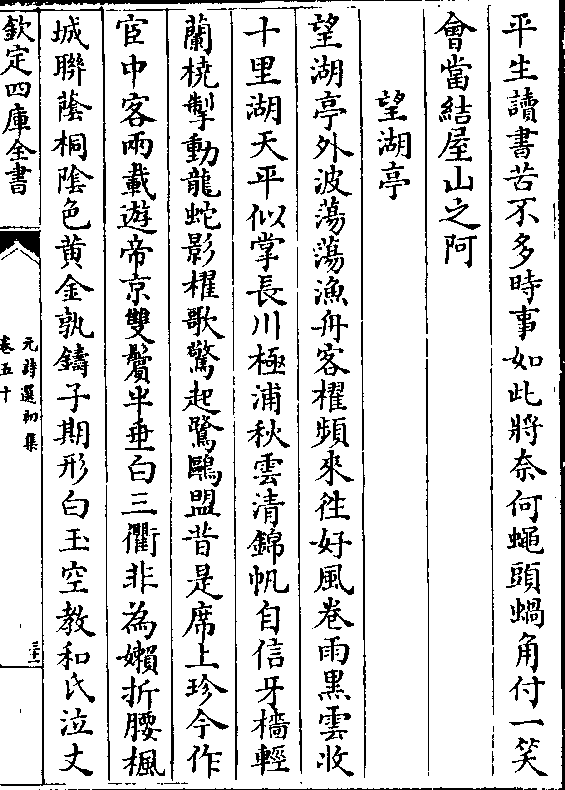 平生讀書苦不多時事如此將奈何蠅頭蝸角付一笑
會當結屋山之阿
望湖亭
望湖亭外波蕩蕩漁舟客櫂頻來往好風卷雨黒雲收
十里湖天平似掌長川極浦秋雲清錦帆自信牙檣輕
蘭橈掣動龍蛇影櫂歌驚起鷺鷗盟昔是席上珍今作
宦中客兩載遊帝京雙鬢半垂白三衢非為嬾折腰楓
城聯蔭桐陰色黄金孰鑄子期形白玉空教和氏泣丈
欽定四庫全書
元詩選初集
卷五十